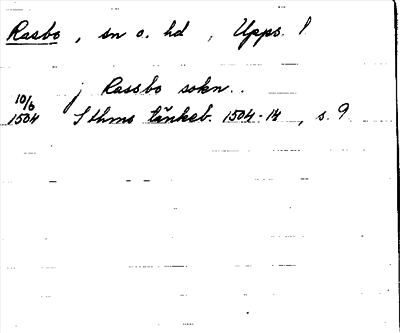 Rasbo, sn o. hd, Upps. l
j Rassbo sokn..
10/6
1504 Sthms tänkeb. 1504-14, s. 9